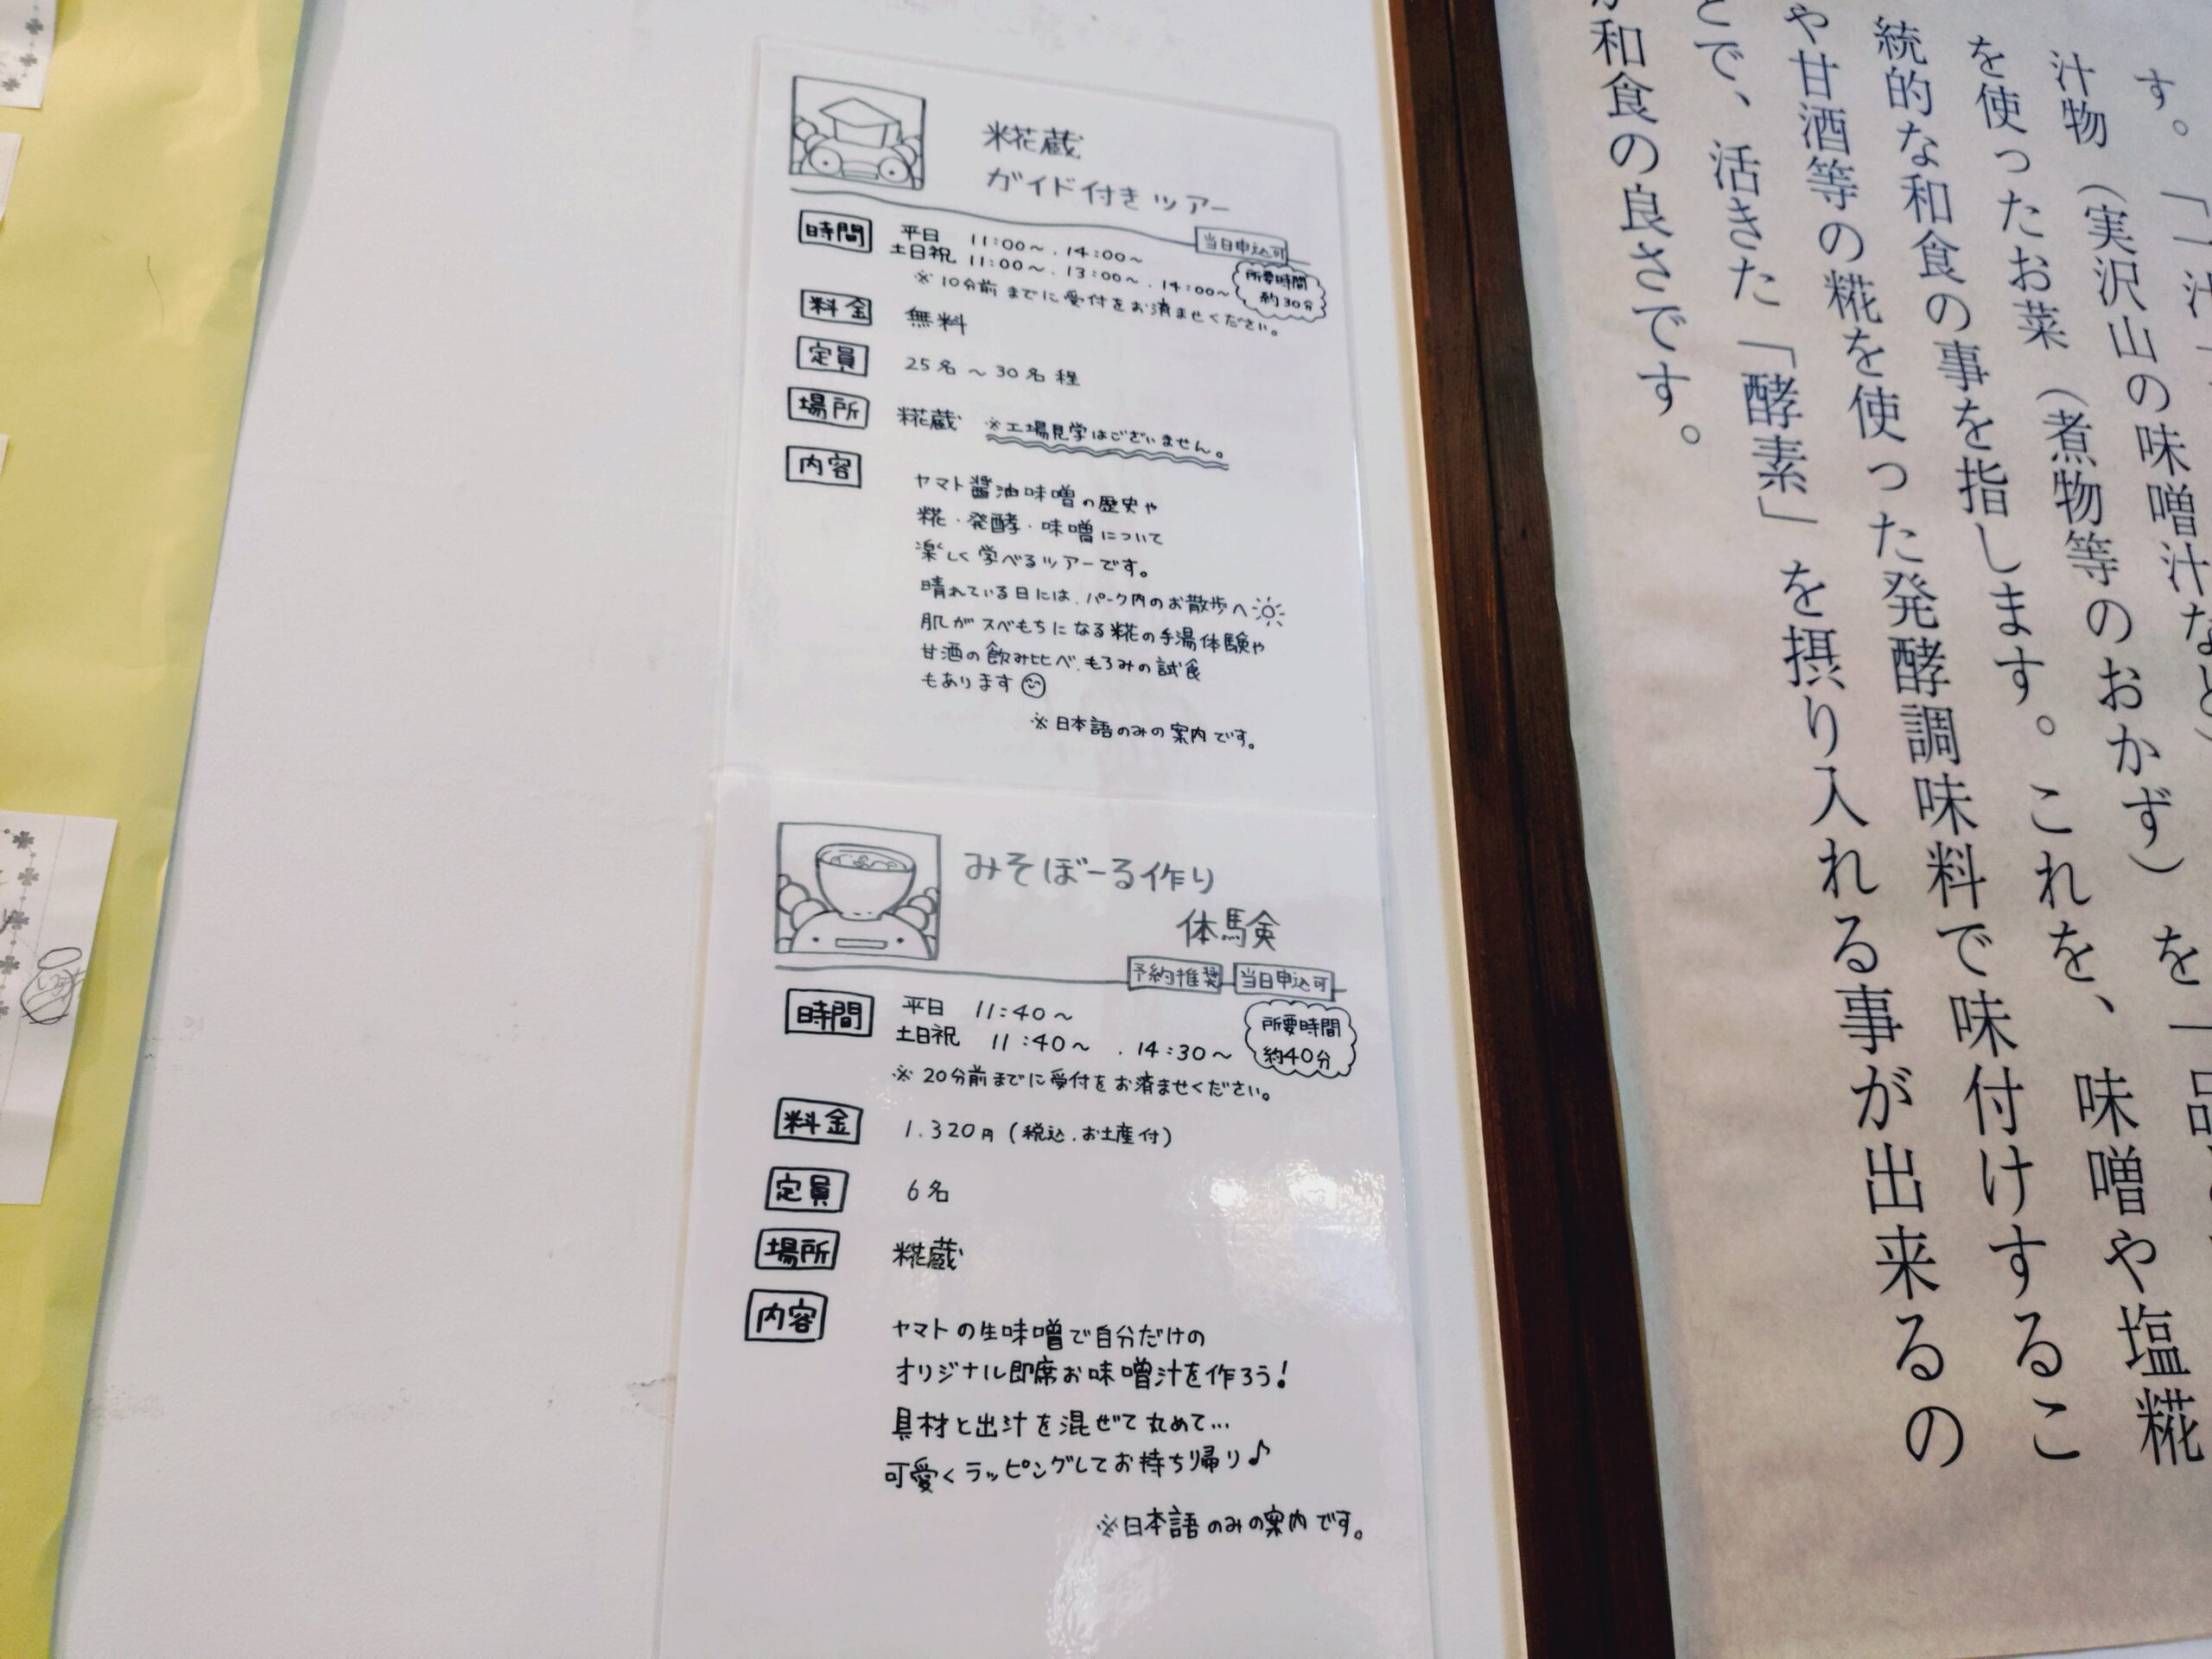 糀蔵
ガイド付きツアー
当日申込可
時間 平日 11:00～ . 14:00～
土日祝 11:00～ . 13:00～ . 14:00～
所要時間
約30分
※10分前までに受付をお済ませください。
料金 無料
定員 25名～30名程
場所 糀蔵 ※工場見学はございません。
内容 ヤマト醬油味噌の歴史や
糀・発酵・味噌について
楽しく学べるツアーです。
晴れている日には、パーク内のお散歩へ
肌がスベもちになる糀の手湯体験や
甘酒の飲み比べ、もろみの試食
もあります
※日本語のみの案内です。
みそぼーる作り
体験
予約推奨 当日申込可
時間 平日 11:40～
土日祝 11:40～ . 14:30～
所要時間
約40分
※20分前までに受付をお済ませください。
料金 1.320円（税込、お土産付）
定員 6名
場所 糀蔵
内容 ヤマトの生味噌で自分だけの
オリジナル即席お味噌汁を作ろう!
具材と出汁を混ぜて丸めて…
可愛くラッピングしてお持ち帰り♪
※日本語のみの案内です。
す。「一汁
汁物（実沢山の味噌汁など）を一品
を使ったお菜（煮物等のおかず）
統的な和食の事を指します。これを、味噌や塩糀
や甘酒等の糀を使った発酵調味料で味付けするこ
とで、活きた「酵素」を摂り入れる事が出来るの
和食の良さです。